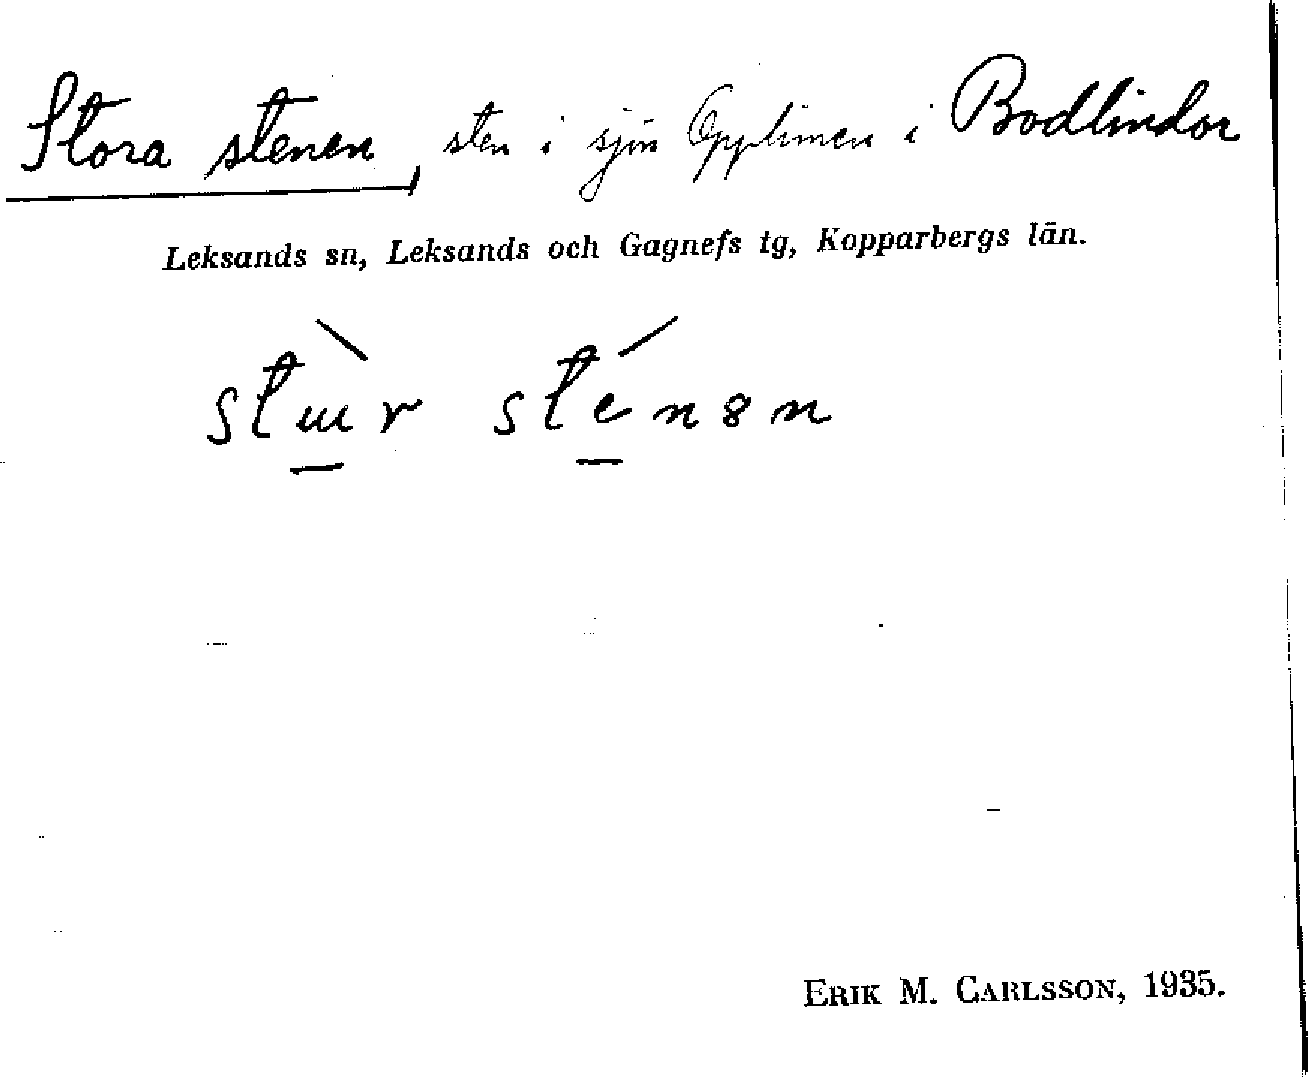 Stora stenen, sten i sjön Opplimen i Bodlindor
Leksands sn, Leksands och Gagnefs tg, Kopparbergs län.
ERIK M. CARLSSON, 1935.